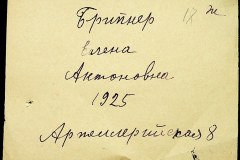 Брипнер 18 ж
Елена
Антоновна
1925
Артиллерийская 8